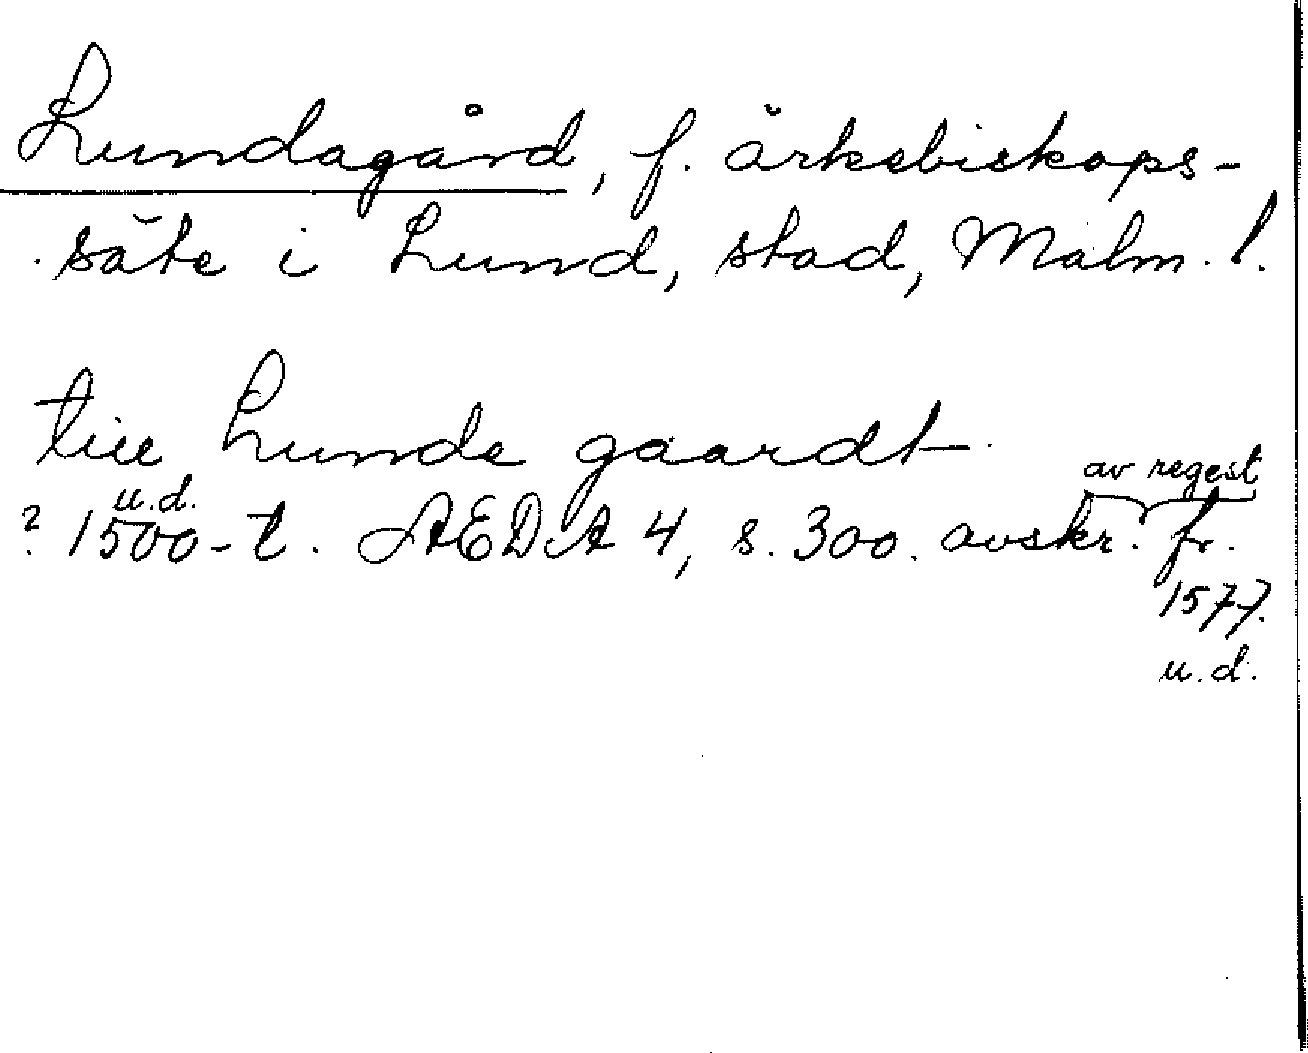 Lundagård, f. ärkebiskops-
säte i Lund, stad, Malm. l.
till Lunde gaardt
av regest
u.d.
? 1500-t. ÆDA 4, s. 300. avskr. fr.
1577.
u.d.